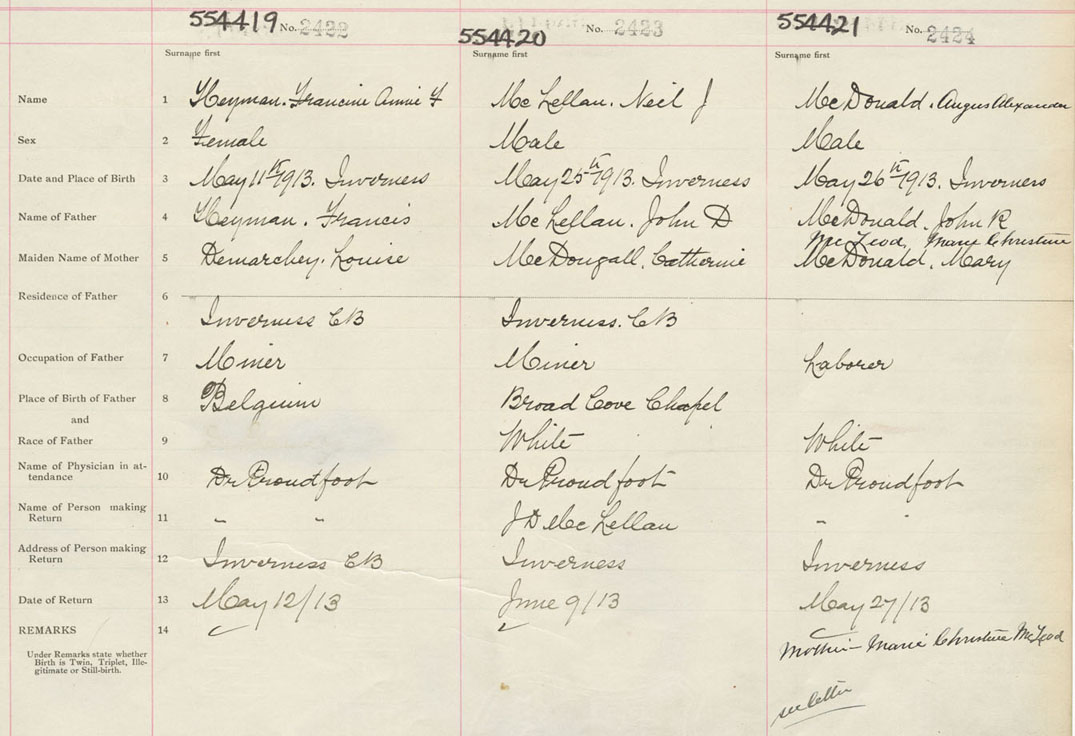 554419 No. 2422 554420 No. 2423 554421 No. 2424
Surname first Surname first Surname first
Name 1 Heyman. Francine Annie F McLellan. Neil J McDonald. Angus Alexander
Sex 2 Female Male Male
Date and Place of Birth 3 May 11th 1913. Inverness May 25th 1913. Inverness May 26th 1913. Inverness
Name of Father 4 Heyman. Francis McLellan. John D McDonald. John R
McLeod, Marie Christine
Maiden Name of Mother 5 Demarchey. Louise McDougall. Catherine McDonald. Mary
Residence of Father 6
Inverness CB Inverness. CB
Occupation of Father 7 Miner Miner Laborer
Place of Birth of Father 8 Belgium Broad Cove Chapel
and
Race of Father 9 White White
Name of Physician in at-
tendance 10 Dr Proudfoot Dr Proudfoot Dr Proudfoot
Name of Person making
Return 11 " " J D McLellan " "
Address of Person making
Return 12 Inverness CB Inverness Inverness
Date of Return 13 May 12/13 June 9/13 May 27/13
REMARKS 14
Mother - Marie Christine McLeod
Under Remarks state whether
Birth is Twin, Triplet, Ille-
gitimate or Still-birth.
see letter